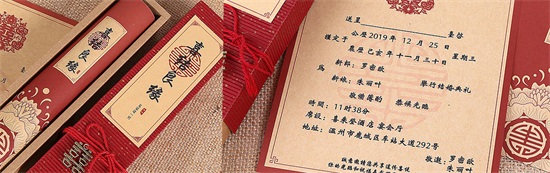 喜结良缘
喜结良缘
送呈 喜啓
謹定于 公歷 2019 年 12 月 25 日 星期三
農歷 己亥 年 十一月 三十 日
新郎：罗密欧
爲
新娘：朱丽叶 舉行結婚典礼
敬備薄酌 恭候光臨
時間：11时38分
席設：喜来登酒店 宴会厅
地址：温州市鹿城区车站大道292号
敬邀：罗密欧
朱丽叶